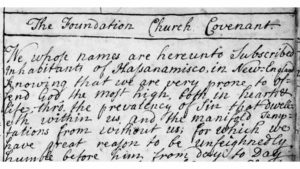 The Foundation Church Covenant
We whose names are hereunto Subscribed
Inhabitants of Hassanamisco, in New-England
Knowing that we are very prone to of-
fend God the most high, both in heart &
life, thro' the prevalency of Sin that dwell-
eth within us, and the manifold Temp-
tations from without us, for which we
have great reason to be unfeignedly
humble before him, from day to Day